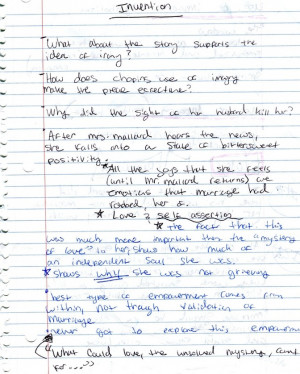 Invention
What about the story supports the
idea of irony?
How does chopins use of imagry
make the piece
Why did the sight of her husband kill her?
After mrs. mallard hears the news,
she falls into a state of bittersweet
positivity.
* All the joys that she feels
(until Mr. mallard returns) are
emotions that marriage had
robbed her of.
* Love & self assertion
* the fact that this
was much more important than the "mystery
of love" to her, shows how much of
an independent soul she was.
* shows why she was not grieving
best type of empowerment comes from
within, not through validation of
marriage
never got to explore this empowerment
"What could love, the unsolved mystery, count
for..."